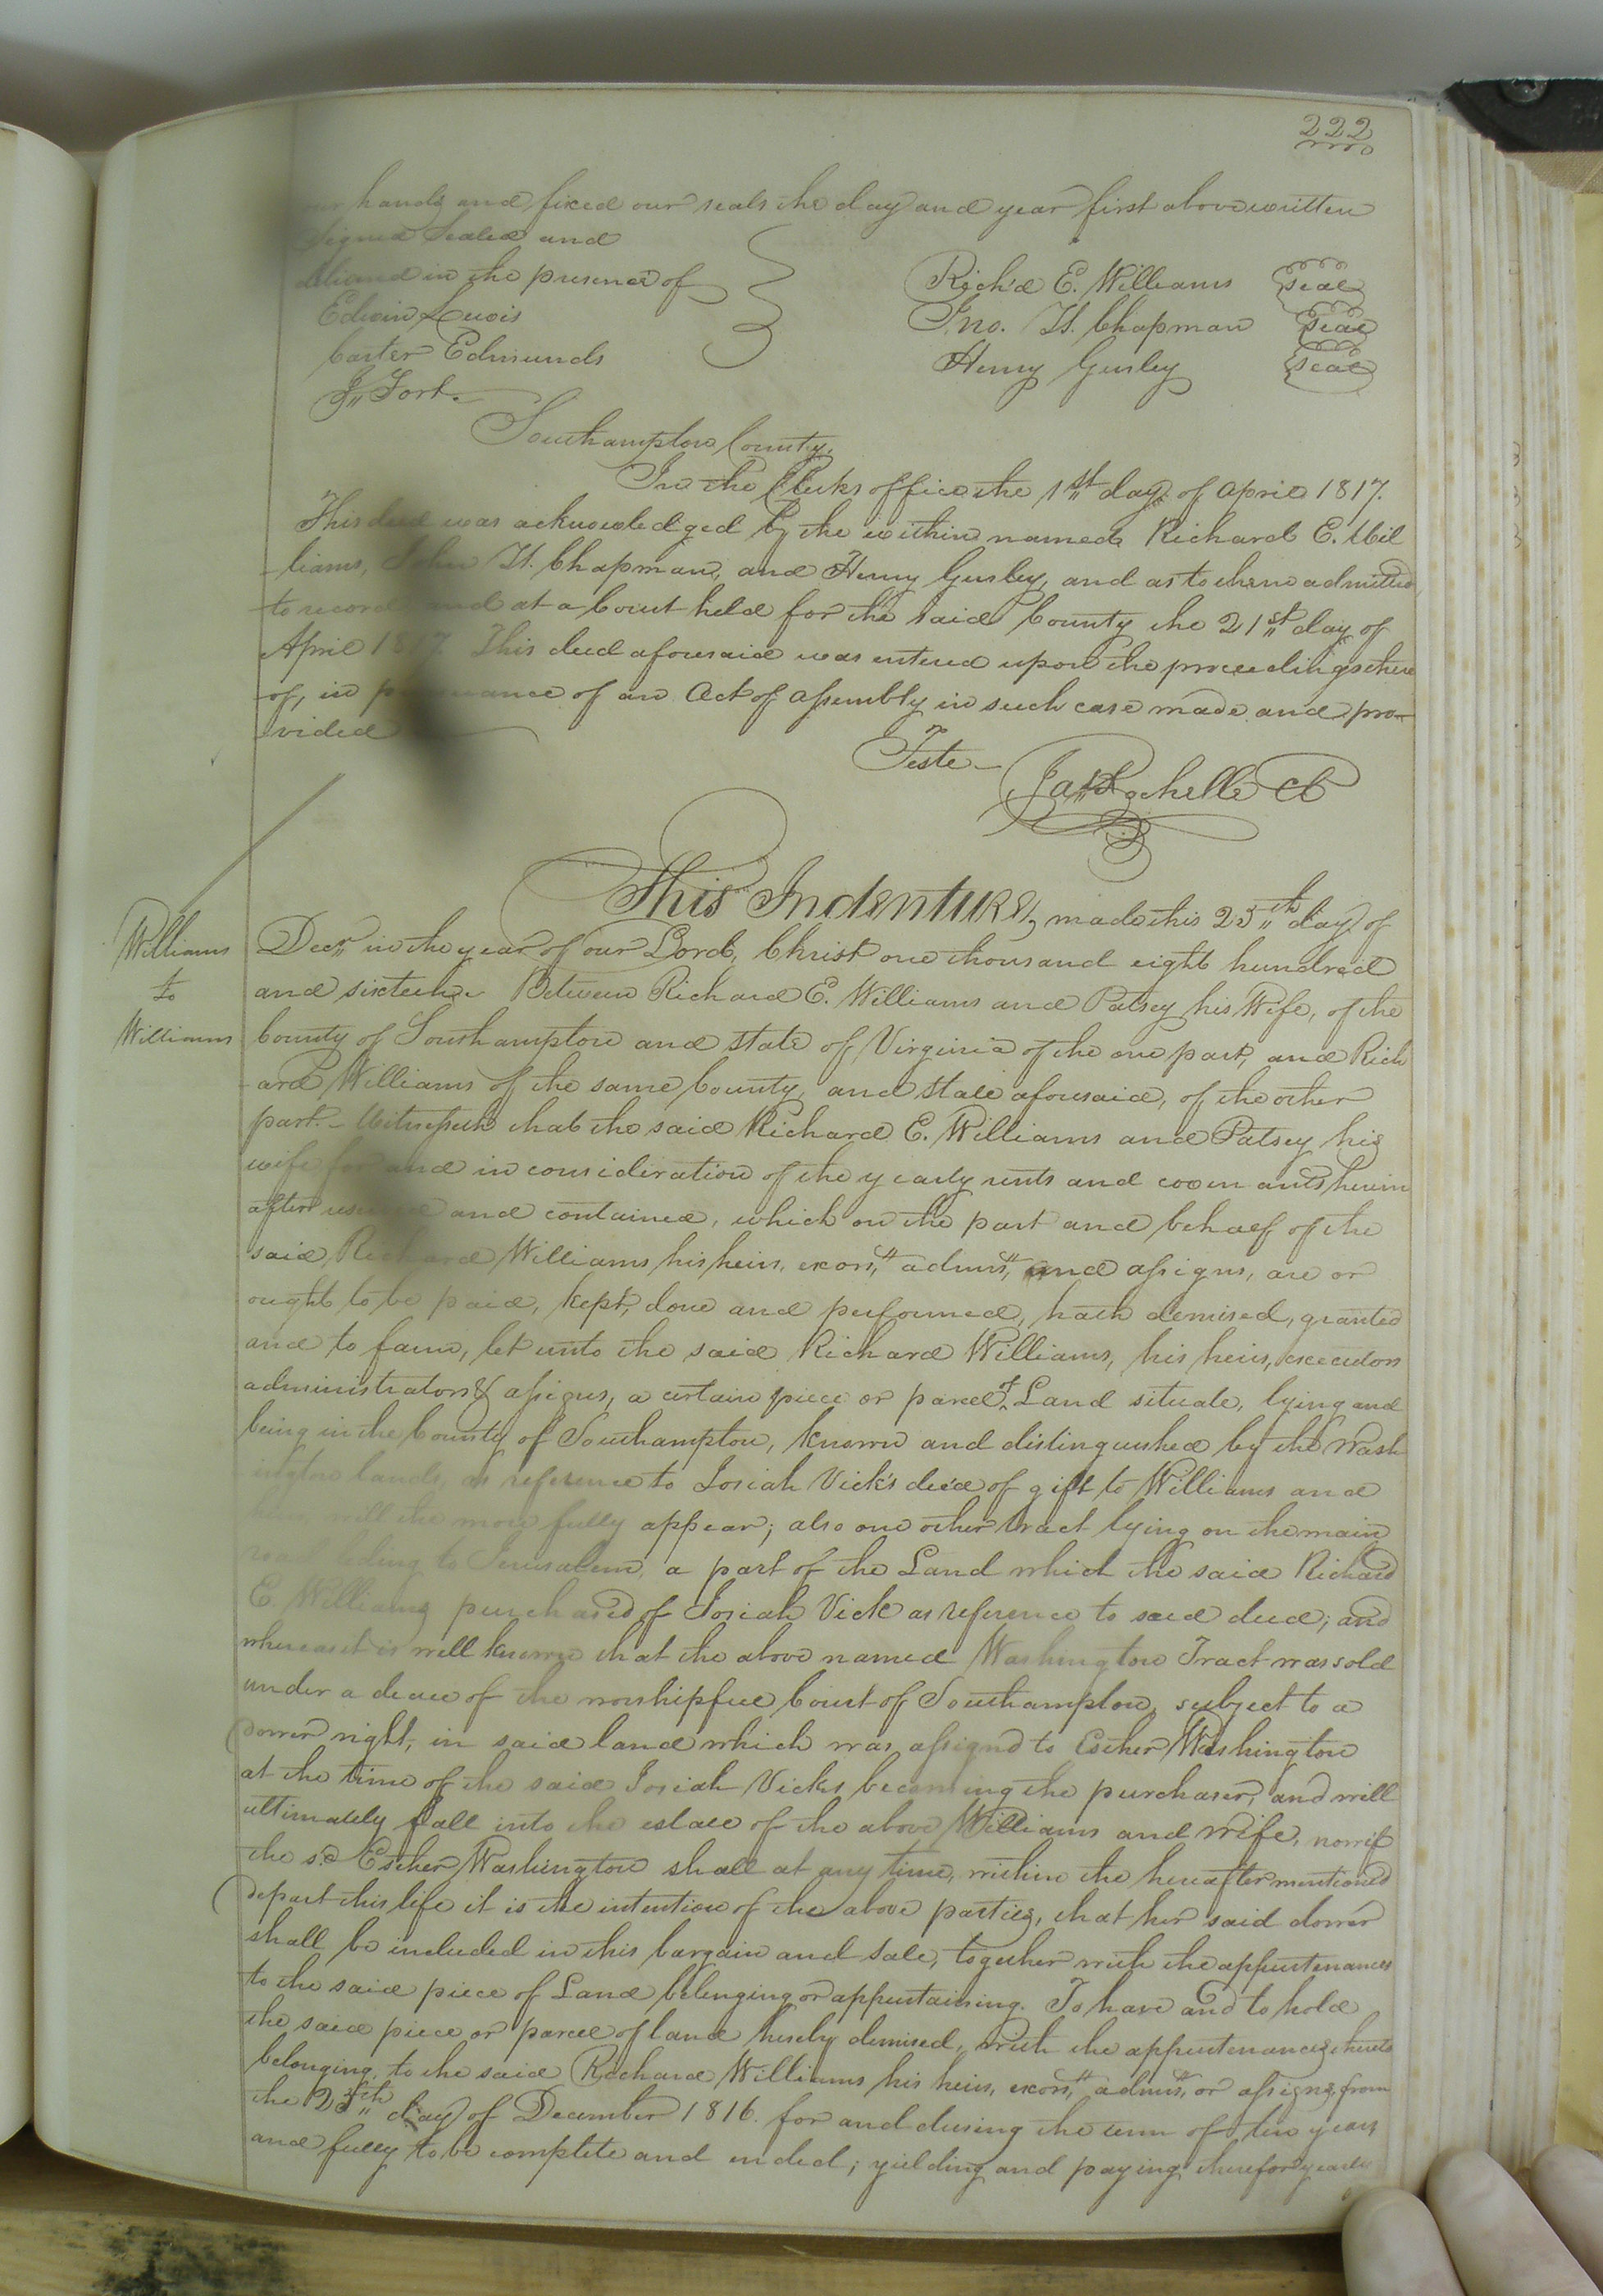 222
our hands and fixed our seals the day and year first above written
Signed Sealed and
in the presence of
Edwin Lewis
Carter Edmunds
J,, Fort.
Rich'd E. Williams seal
Jno. H. Chapman seal
Henry Gurley seal
Southampton County,
In the Clerks office the 1st day of April 1817.
This deed was acknowledged by the within named Richard E. Wil
liams, John H. Chapman, and Henry Gurley, and as to them admitted
to record and at a Court held for the said County the 21st day of
April 1817. This deed aforesaid was entered upon the proceedings there
of, in pursuance of an Act of Assembly in such case made and pro-
vided
Teste - Jas Rochelle CC
Williams
to
Williams
This Indenture, made this 25th day of
Decr in the year of our Lord, Christ one thousand eight hundred
and sixteen. Between Richard E. Williams and Patsey his Wife, of the
County of Southampton and state of Virginia of the one part, and Rich
ard Williams of the same County, and state aforesaid, of the other
part. - Witnesseth that the said Richard E. Williams and Patsey his
wife for and in consideration of the yearly rents and covenants herein
after reserved and contained, which on the part and behalf of the
said Richard Williams his heirs, exors, admrs, and assigns, are or
ought to be paid, kept, done and performed, hath demised, granted
and to farm, let unto the said Richard Williams, his heirs, executors
administrators & assigns, a certain piece or parcel of Land situate, lying and
being in the County of Southampton, known and distinguished by the Wash
ington lands, as reference to Josiah Vick's deed of gift to Williams and
will the more fully appear; also one other tract lying on the main
road leding to Jerusalem, a part of the Land which the said Richard
E. Williams purchased of Josiah Vick as reference to said deed; and
whereas it is well known that the above named Washington Tract was sold
under a decree of the worshipfull Court of Southampton, subject to a
dower right, in said land which was assignd to Esther Washington
at the time of the said Josiah Vicks becoming the purchaser, and will
ultimately fall into the estate of the above Williams and wife, now if
the sd Esther Washington shall at any time, within the hereafter mentioned
depart this life it is the intention of the above parties, that her said dower
shall be included in this bargain and sale, together with the appurtenances
to the said piece of Land belonging or appurtaining. To have and to hold
the said piece or parcel of land hereby demised, with the appurtenances thereto
belonging, to the said Richard Williams his heirs, exors, admrs, or assigns, from
the 25th day of December 1816. for and during the term of ten years
and fully to be complete and ended; yielding and paying therefor yearly